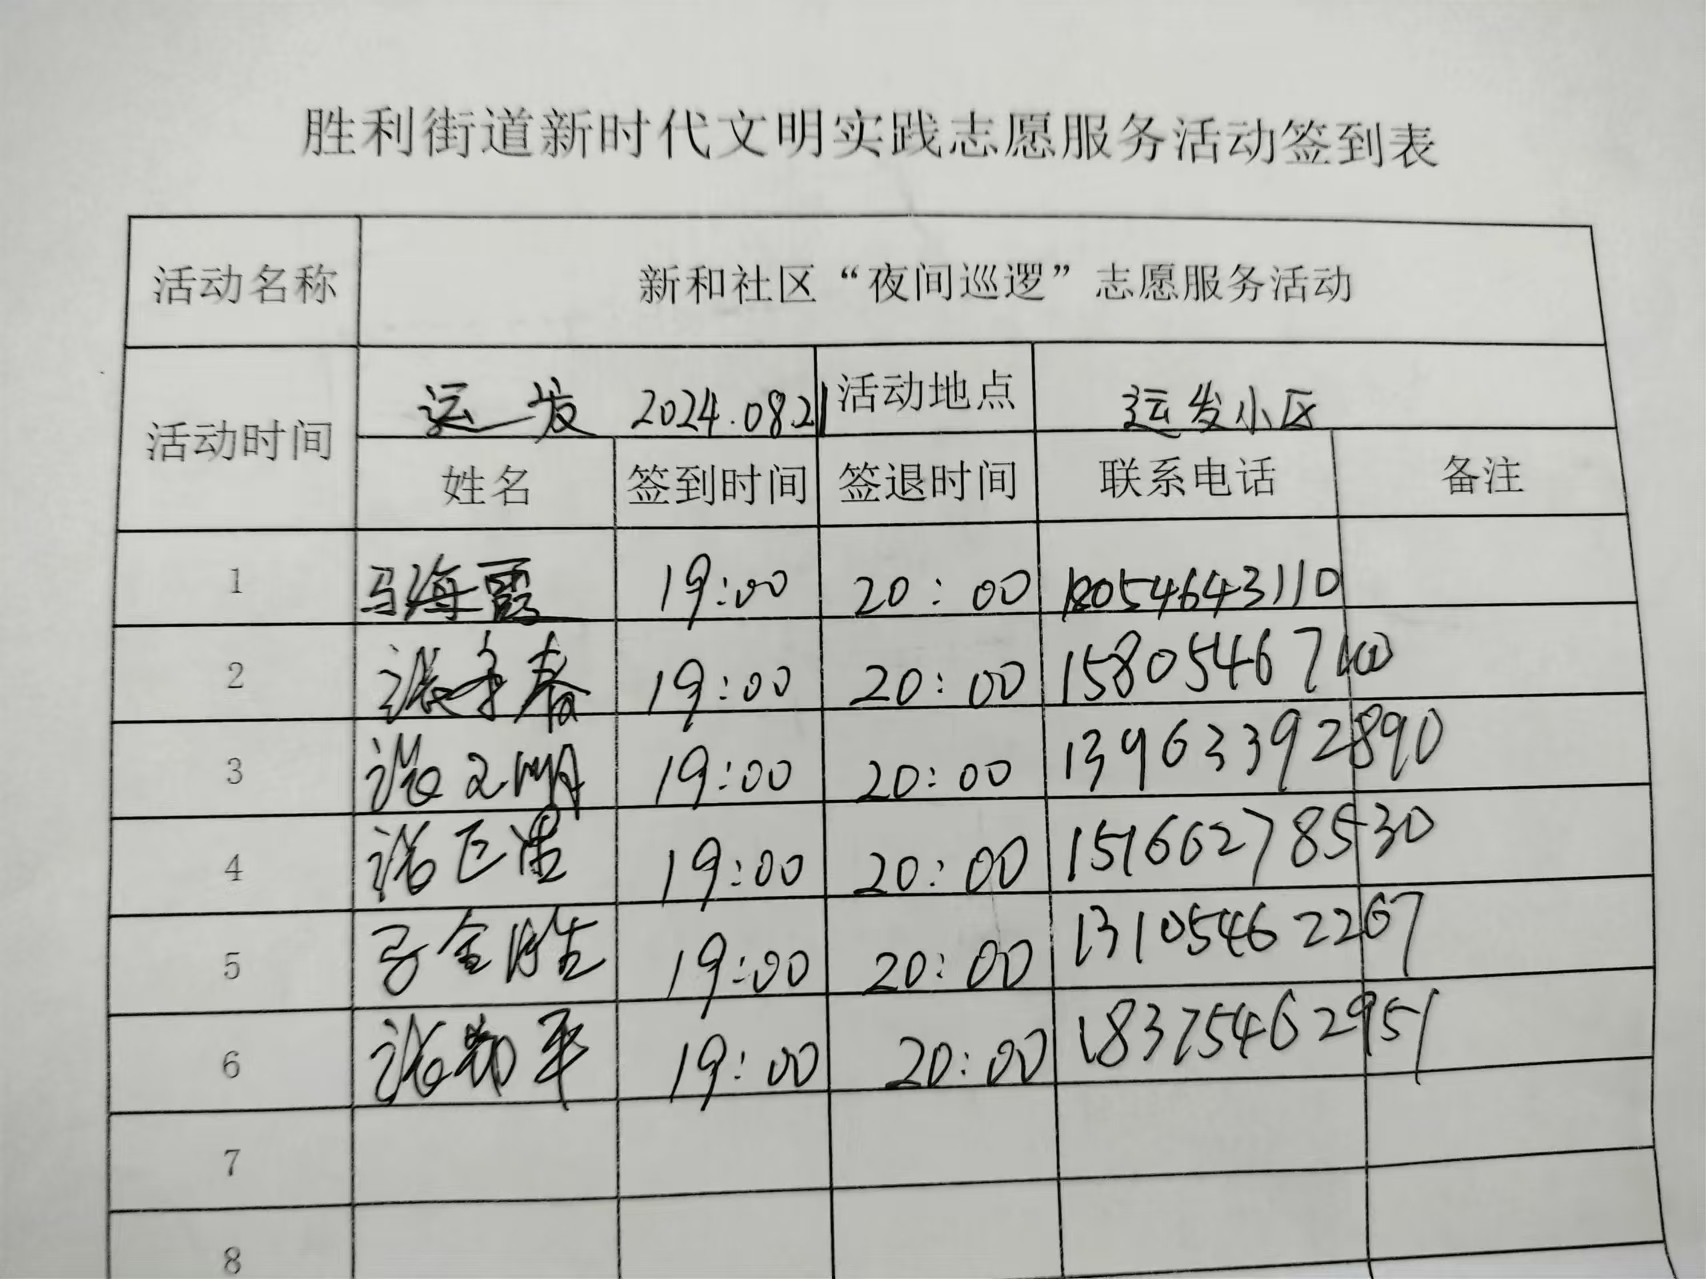 胜利街道新时代文明实践志愿服务活动签到表
活动名称 新和社区“夜间巡逻”志愿服务活动
活动时间 运发 2024.08.21 活动地点 运发小区
姓名 签到时间 签退时间 联系电话 备注
1 马海霞 19:00 20:00 18054643110
2 19:00 20:00
3 张文明 19:00 20:00 13963392890
4 19:00 20:00 15166278530
5 19:00 20:00 13105462267
6 19:00 20:00 18375462951
7
8